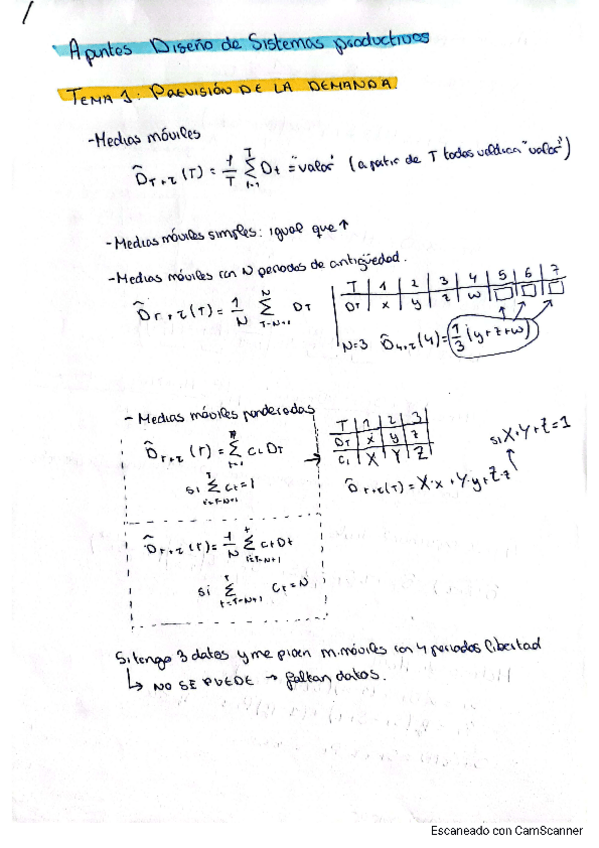 1
Apuntes Diseño de Sistemas productivos
TEMA 1: PREVISIÓN DE LA DEMANDA.
- Medias móviles
D̂T+τ (T) = 1/T Σ(t=1, T) Dt = "valor" (a partir de T todas valdrian "valor")
- Medias móviles simples: igual que ↑
- Medias móviles con N periodos de antigüedad.
D̂T+τ (T) = 1/N Σ(T-N+1, N) DT
T | 1 | 2 | 3 | 4 | 5 | 6 | 7
DT | x | y | z | w | □ | □ | □
N=3 D̂4+τ (4) = 1/3 (y+z+w)
- Medias móviles ponderadas
D̂T+τ (T) = Σ ci DT
si Σ ct = 1
T | 1 | 2 | 3
DT | x | y | z
ci | X | Y | Z
si X+Y+Z=1
D̂T+τ(T) = X·x + Y·y + Z·z
D̂T+τ (T) = 1/N Σ(t=T-N+1) ctDt
si Σ(t=T-N+1, T) ct = N
Si tengo 3 datos y me piden m. móviles con 4 periodos libertad
↳ NO SE PUEDE → faltan datos.
Escaneado con CamScanner